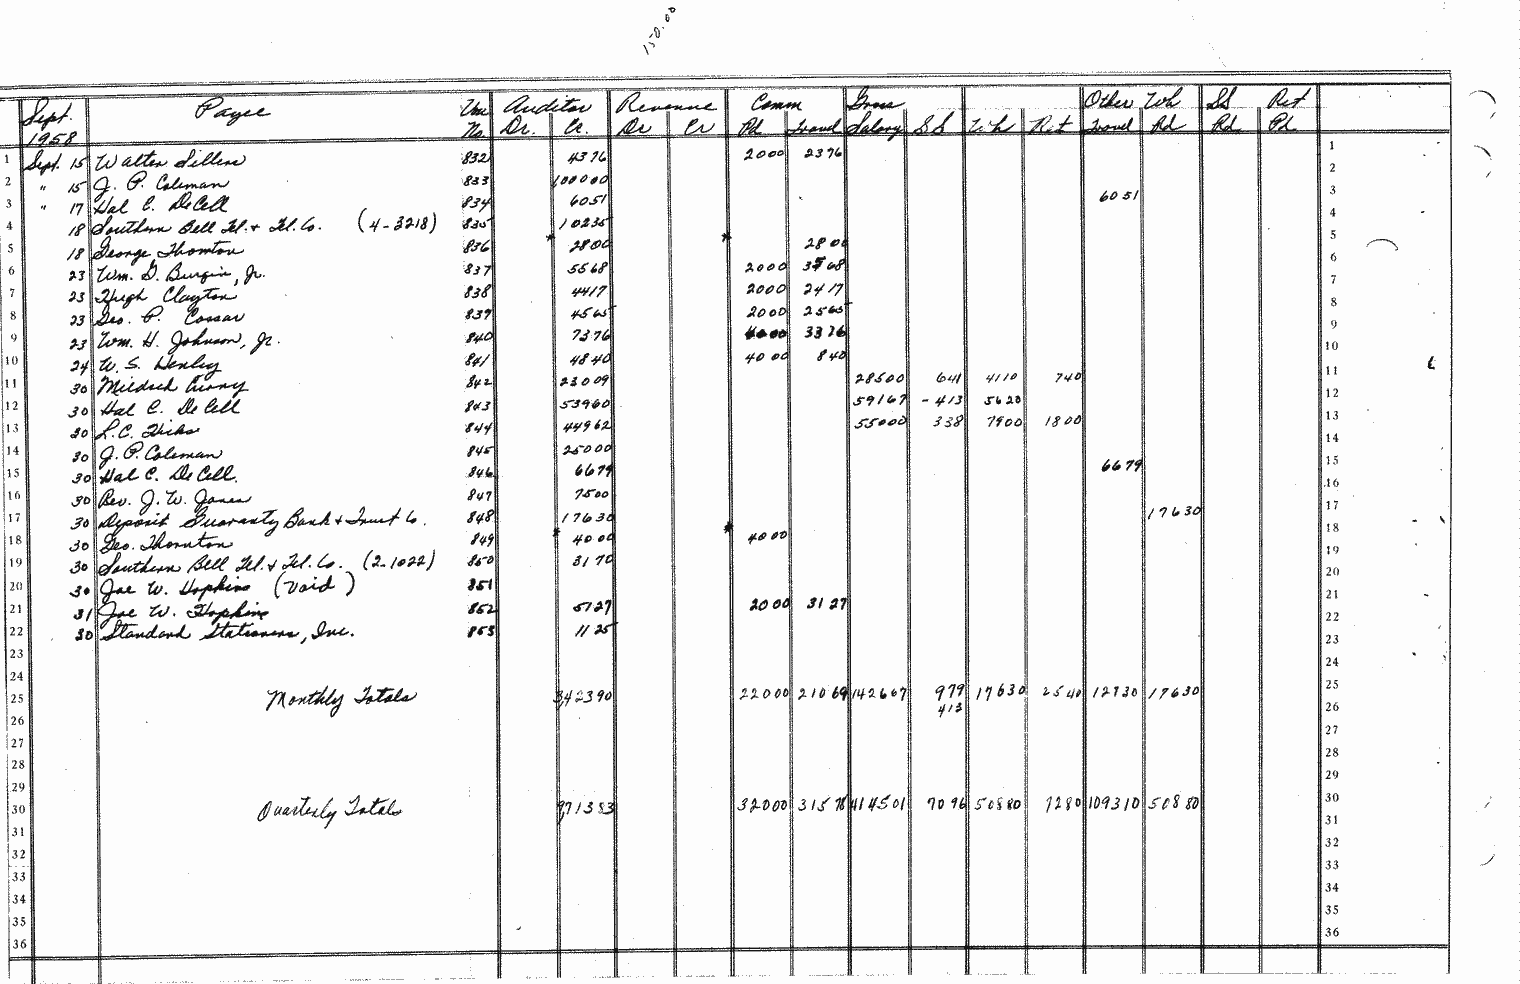 150.00
Sept. Payee Vou Auditor Revenue Comm Gross Other Wh SS Ret
1958 No. Dr. Cr. Dr Cr Pd Travel Salary SS Wh Ret Travel Pd Pd Pd
1 Sept. 15 Walter Sillers 832 4376 2000 2376 1
2 " 15 J. P. Coleman 833 100000 2
3 " 17 Hal C. DeCell 834 6051 6051 3
4 18 Southern Bell Tel. + Tel. Co. (4-3218) 835 10235 4
5 18 George Thornton 836 * 2800 * 2800 5
6 23 Wm. G. Burgin, Jr. 837 5568 2000 3568 6
7 23 Hugh Clayton 838 4417 2000 2417 7
8 23 Geo. P. Cossar 839 4565 2000 2565 8
9 23 Wm. H. Johnson, Jr. 840 7376 4000 3376 9
10 24 W. S. Henley 841 4840 4000 840 10
11 30 Mildred Curry 842 23009 28500 641 4110 740 11
12 30 Hal C. DeCell 843 53960 59167 -413 5620 12
13 30 L.C. Hicks 844 44962 55000 338 7900 1800 13
14 30 J. P. Coleman 845 25000 14
15 30 Hal C. DeCell. 846 6679 6679 15
16 30 Rev. J. W. Jones 847 7500 16
17 30 Deposit Guaranty Bank + Trust Co. 848 17630 17630 17
18 30 Geo. Thornton 849 * 4000 * 4000 18
19 30 Southern Bell Tel. + Tel. Co. (2-1022) 850 3170 19
20 30 Joe W. Hopkins (Void) 851 20
21 31 Joe W. Hopkins 852 5127 2000 3127 21
22 30 Standard Stationers, Inc. 853 1125 22
23 23
24 24
25 Monthly Totals 342390 22000 21069 142667 979 17630 2540 12730 17630 25
26 413 26
27 27
28 28
29 29
30 Quarterly Totals 971383 32000 31578 414501 7096 50880 7280 109310 50880 30
31 31
32 32
33 33
34 34
35 35
36 36